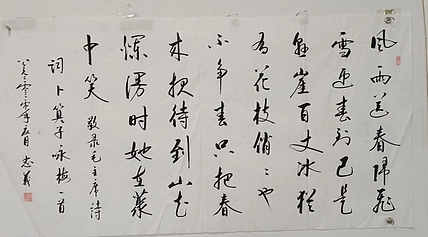 风雨送春归飞
雪迎春到已是
悬崖百丈冰犹
有花枝俏〻也
不争春只把春
来报待到山花
烂漫时她在丛
中笑 敬录毛主席诗
词卜算子咏梅一首
二零二零年 忠义